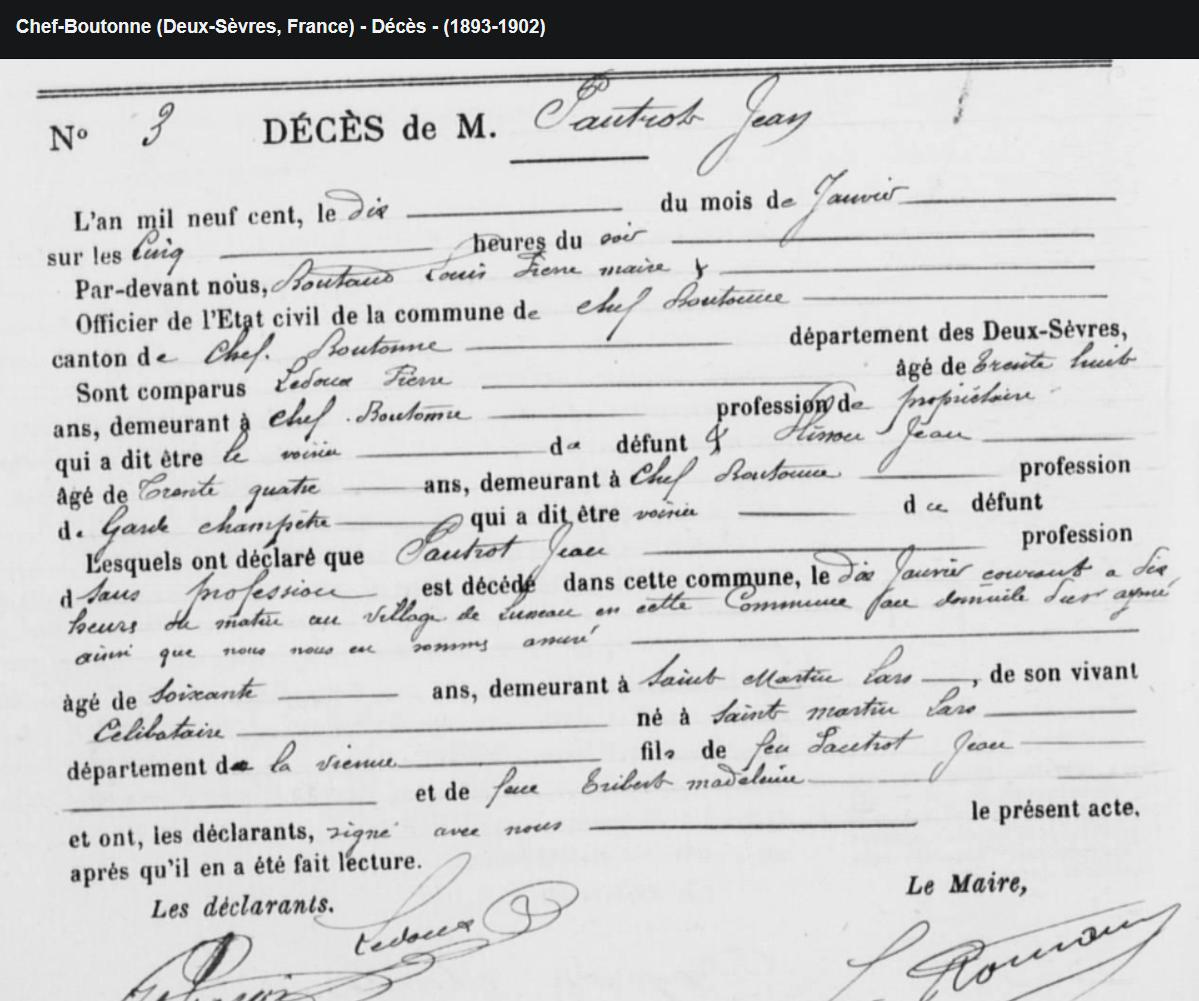 Chef-Boutonne (Deux-Sèvres, France) - Décès - (1893-1902)
N° 3 DÉCÈS de M. Pautrot Jean
L'an mil neuf cent, le dix du mois de Janvier
sur les Cinq heures du soir
Par-devant nous, Louis Pierre maire &
Officier de l'Etat civil de la commune de Chef Boutonne
canton de Chef. Boutonne département des Deux-Sèvres,
Sont comparus Ledoux Pierre âgé de trente huit
ans, demeurant à Chef. Boutonne profession de propriétaire
qui a dit être le voisin du défunt & Jean
âgé de Trente quatre ans, demeurant à Chef Boutonne profession
de Garde champêtre qui a dit être voisin du défunt
Lesquels ont déclaré que Pautrot Jean profession
d sans profession est décédé dans cette commune, le dix Janvier courant a dix
heures du matin au village de en cette Commune au domicile
ainsi que nous nous en sommes assuré
âgé de Soixante ans, demeurant à Saint Martin Lars, de son vivant
Célibataire né à Saint martin Lars
département de la vienne fils de feu Pautrot Jean
et de feue Eribert madeleine
et ont, les déclarants, signé avec nous le présent acte.
après qu'il en a été fait lecture.
Le Maire,
Les déclarants.
Ledoux